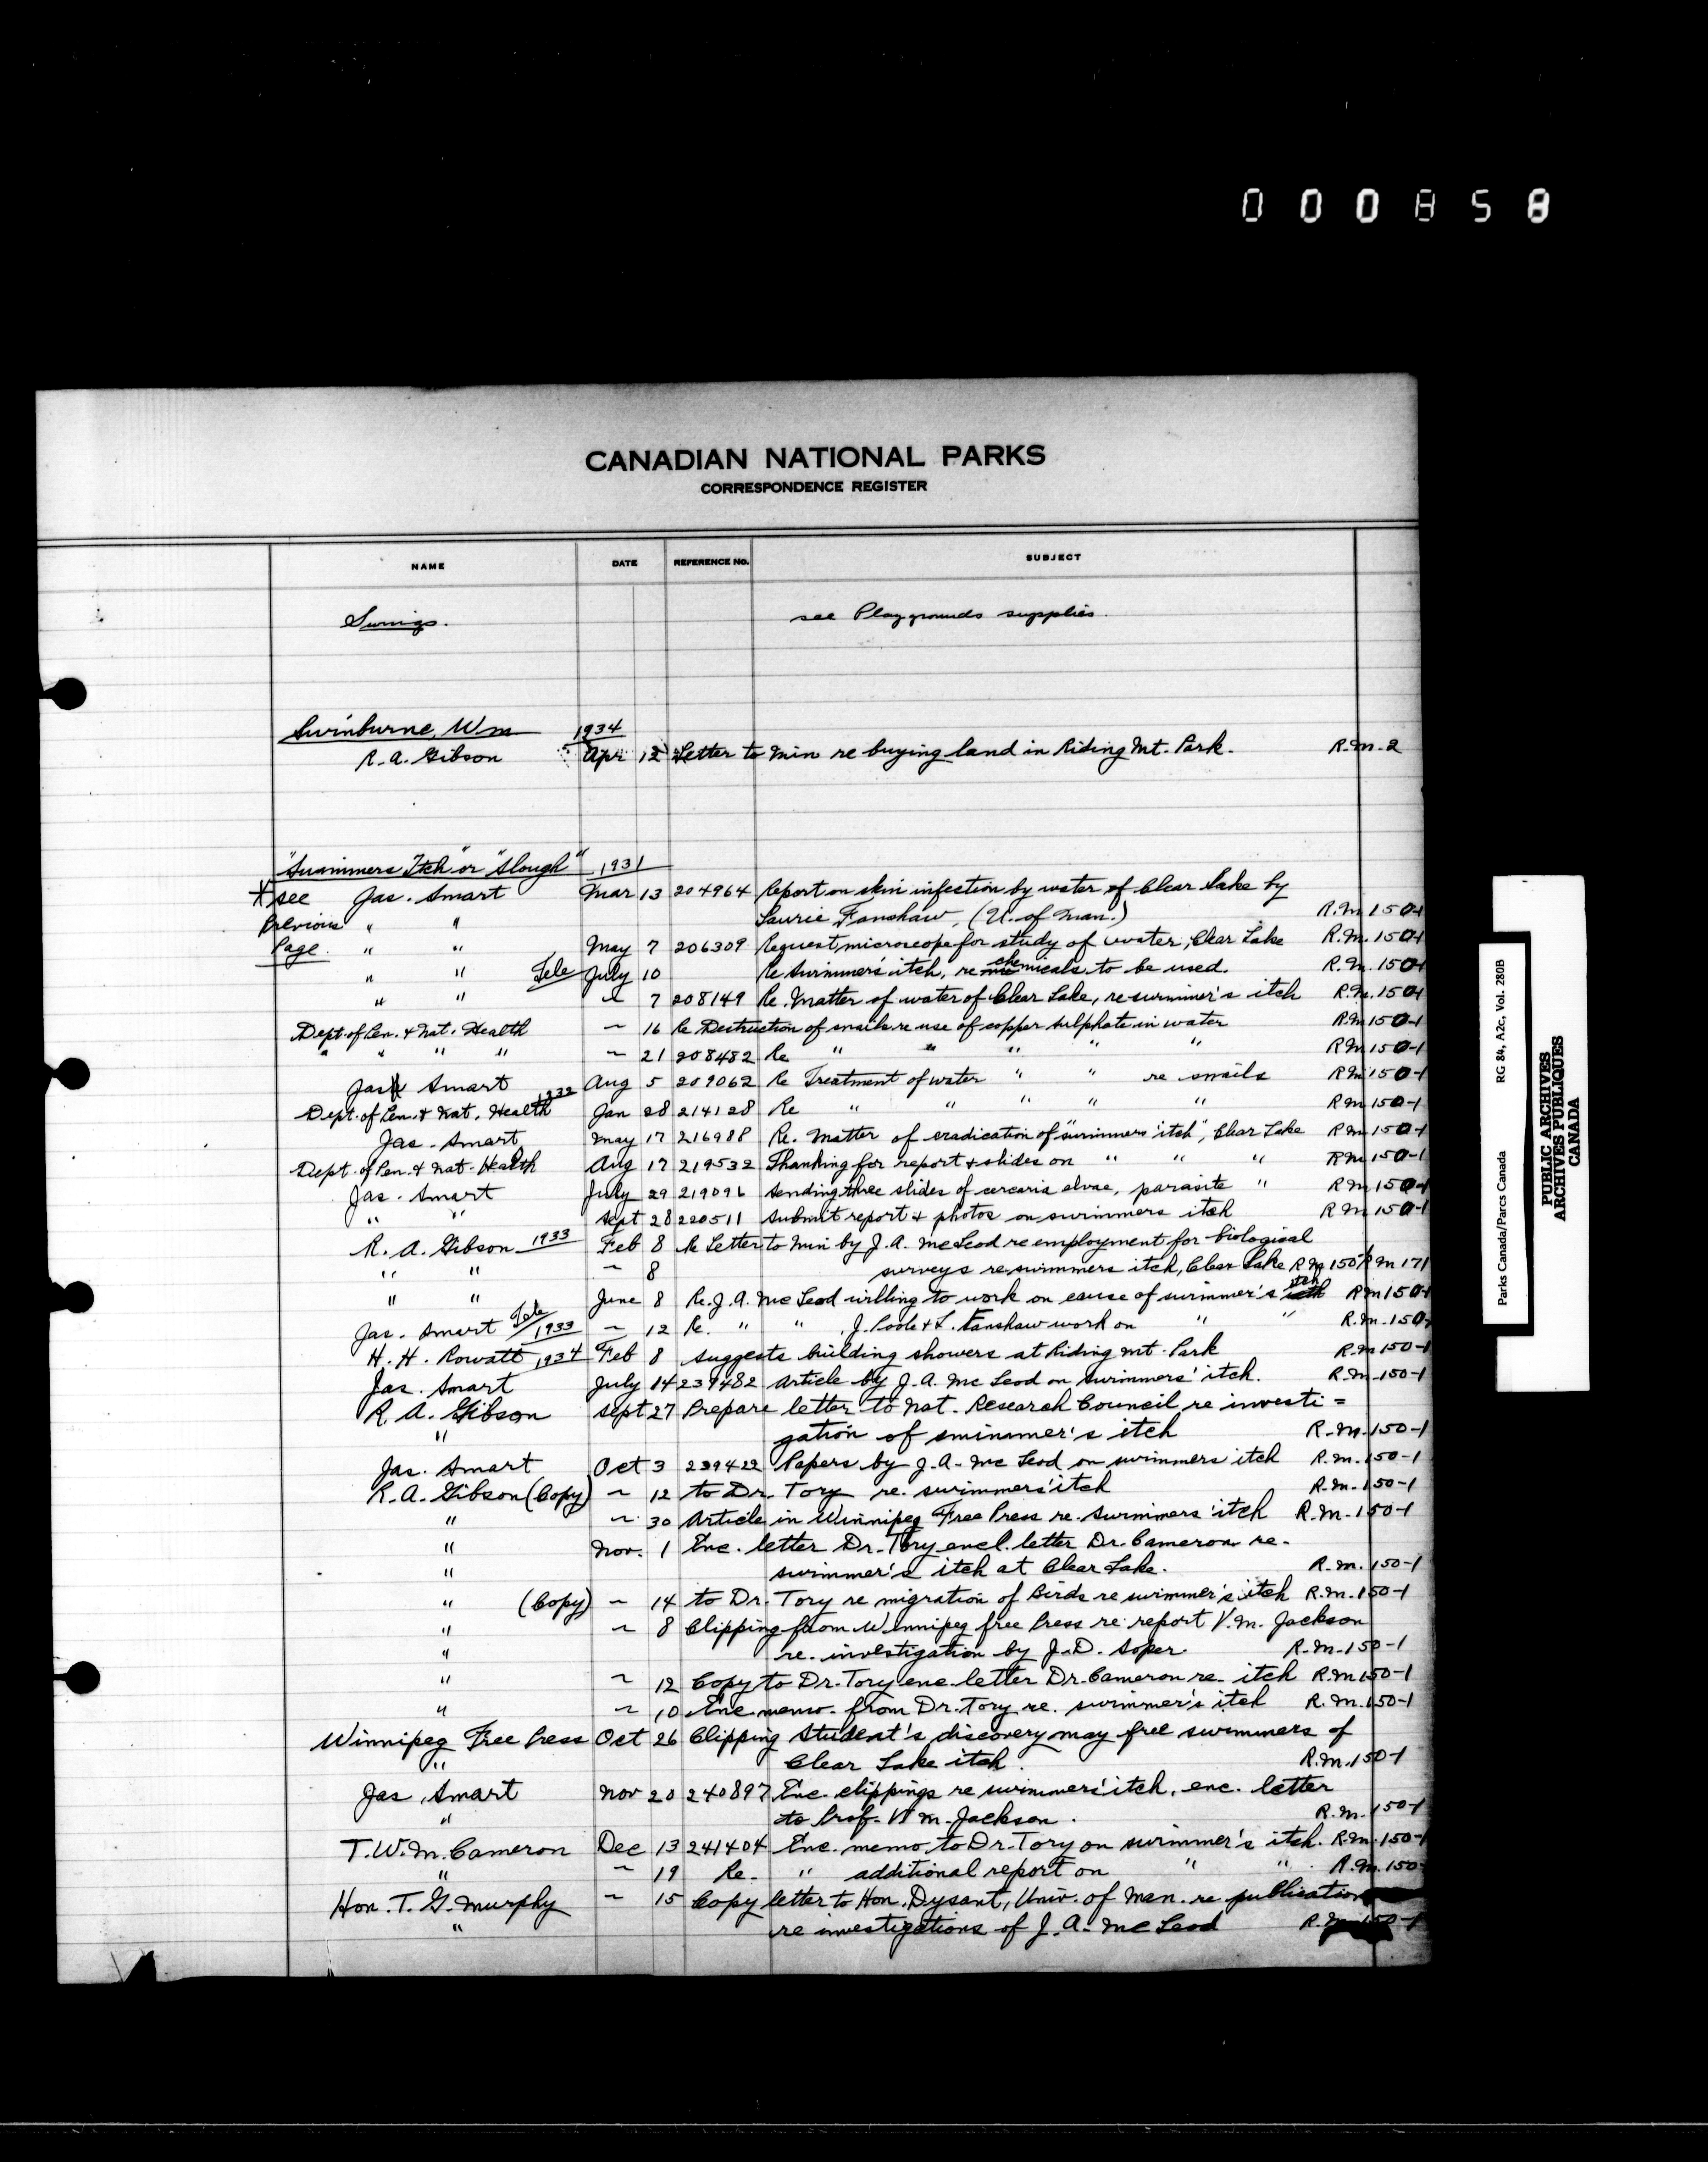 000858
CANADIAN NATIONAL PARKS
CORRESPONDENCE REGISTER
NAME DATE REFERENCE No. SUBJECT
Swings. see Playgrounds supplies.
Swinburne, Wm 1934
R. A. Gibson Apr 12 Letter to Min re buying land in Riding Mt. Park. R.M. 2
"Swimmers Itch" or "Slough" 1931
* see Jas. Smart Mar 13 204964 Report on skin infection by water of Clear Lake by
Previous " " Laurie Fanshaw, (U. of Man.) R.M. 150-1
Page. " " May 7 206309 Request, microscope for study of water, Clear Lake R.M. 150-1
" " Tele July 10 Re swimmers' itch, re chemicals to be used. R.M. 150-1
" " ~ 7 208149 Re. Matter of water of Clear Lake, re swimmer's itch R.M. 150-1
Dept. of Pen. & Nat. Health ~ 16 Re Destruction of snails re use of copper sulphate in water R.M 150-1
" " " " ~ 21 208482 Re " " " " " R M 150-1
Jas Smart Aug 5 209062 Re Treatment of water " " re snails R M 150-1
1932
Dept. of Pen. & Nat. Health Jan 28 214128 Re " " " " " R M 150-1
Jas. Smart May 17 216988 Re. Matter of eradication of "swimmers itch", Clear Lake R M 150-1
Dept. of Pen. & Nat. Health Aug 17 219532 Thanking for report & slides on " " " R M 150-1
Jas. Smart July 29 219096 Sending three slides of cercaria elvae, parasite " R M 150-1
" " Sept 28 220511 Submit report & photos on swimmers itch R M 150-1
R. A. Gibson 1933 Feb 8 Re Letter to Min by J. A. McLeod re employment for biological
" " ~ 8 surveys re swimmers itch, Clear Lake R M 150-1 R M 171
" " June 8 Re. J. A. McLeod willing to work on cause of swimmer's itch R M 150-1
Jas. Smart Tele 1933 ~ 12 Re. " " J. Poole & L. Fanshaw work on " " R.M. 150-1
H. H. Rowatt 1934 Feb 8 Suggests building showers at Riding Mt. Park R.M 150-1
Jas. Smart July 14 239482 Article by J. A. McLeod on swimmers' itch. R.M. 150-1
R. A. Gibson Sept 27 Prepare letter to Nat. Research Council re investi=
" gation of swimmer's itch R.M. 150-1
Jas. Smart Oct 3 239422 Papers by J. A. McLeod on swimmers itch R.M. 150-1
R. A. Gibson (Copy) ~ 12 to Dr. Tory re. swimmers' itch R.M. 150-1
" ~ 30 Article in Winnipeg Free Press re. swimmers' itch R.M. 150-1
" Nov. 1 Enc. letter Dr. Tory encl. letter Dr. Cameron re.
" swimmer's itch at Clear Lake. R.M. 150-1
" (Copy) ~ 14 to Dr. Tory re migration of Birds re swimmer's itch R.M. 150-1
" ~ 8 Clipping from Winnipeg free Press re. report V. M. Jackson
" re. investigation by J. D. Soper. R.M. 150-1
" ~ 12 Copy to Dr. Tory enc. letter Dr. Cameron re. itch R.M 150-1
" ~ 10 Enc. memo. from Dr. Tory re. swimmer's itch R.M. 150-1
Winnipeg Free Press Oct 26 Clipping Student's discovery may free swimmers of
" Clear Lake itch. R.M. 150-1
Jas. Smart Nov 20 240897 Enc. clippings re swimmers' itch, enc. letter
" to Prof. V. M. Jackson. R.M. 150-1
T. W. M. Cameron Dec 13 241404 Enc. memo. to Dr. Tory on swimmer's itch. R.M. 150-1
" ~ 19 Re. " additional report on " " R.M. 150-
Hon. T. G. Murphy ~ 15 Copy letter to Hon. Dysant, Univ. of Man. re publication
" re investigations of J. A. McLeod R.M. 150-1
Parks Canada/Parcs Canada RG 84, A2c, Vol. 280B
PUBLIC ARCHIVES
ARCHIVES PUBLIQUES
CANADA